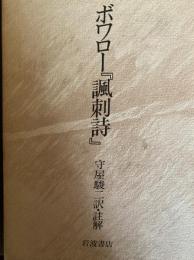 ボワロー『諷刺詩』
守屋駿二 訳・註解
岩波書店